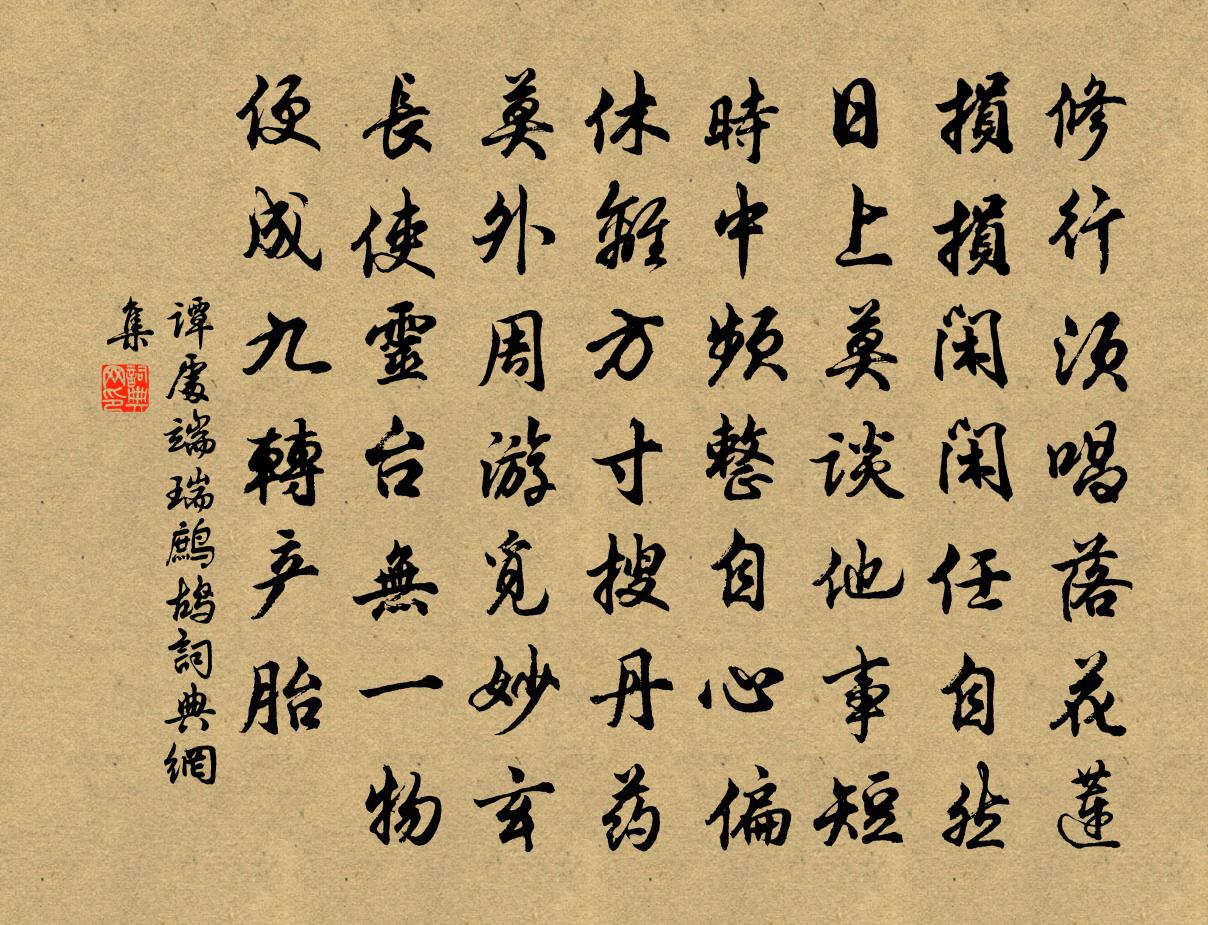 修行须唱落花蓮
損損闲闲任自然
日上莫谈他事短
時中频整自心偏
休離方寸搜丹药
莫外周游覓妙玄
長使靈台無一物
便成九轉产胎
谭處端瑞鷓鸪詞典網
集
詞典
网印